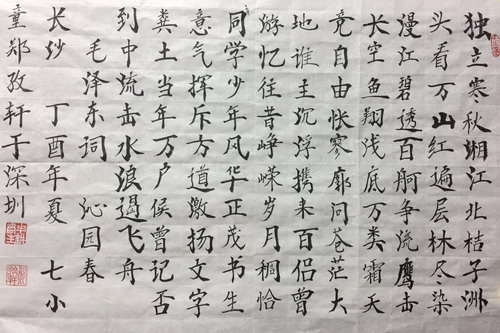 独立寒秋湘江北桔子洲
头看万山红遍层林尽染
漫江碧透百舸争流鹰击
长空鱼翔浅底万类霜天
竞自由怅寥廓问苍茫大
地谁主沉浮携来百侣曾
游忆往昔峥嵘岁月稠恰
同学少年风华正茂书生
意气挥斥方遒激扬文字
粪土当年万户侯曾记否
到中流击水浪遏飞舟
毛泽东词 沁园春
长沙 丁酉年夏 七小
童郑孜轩于深圳